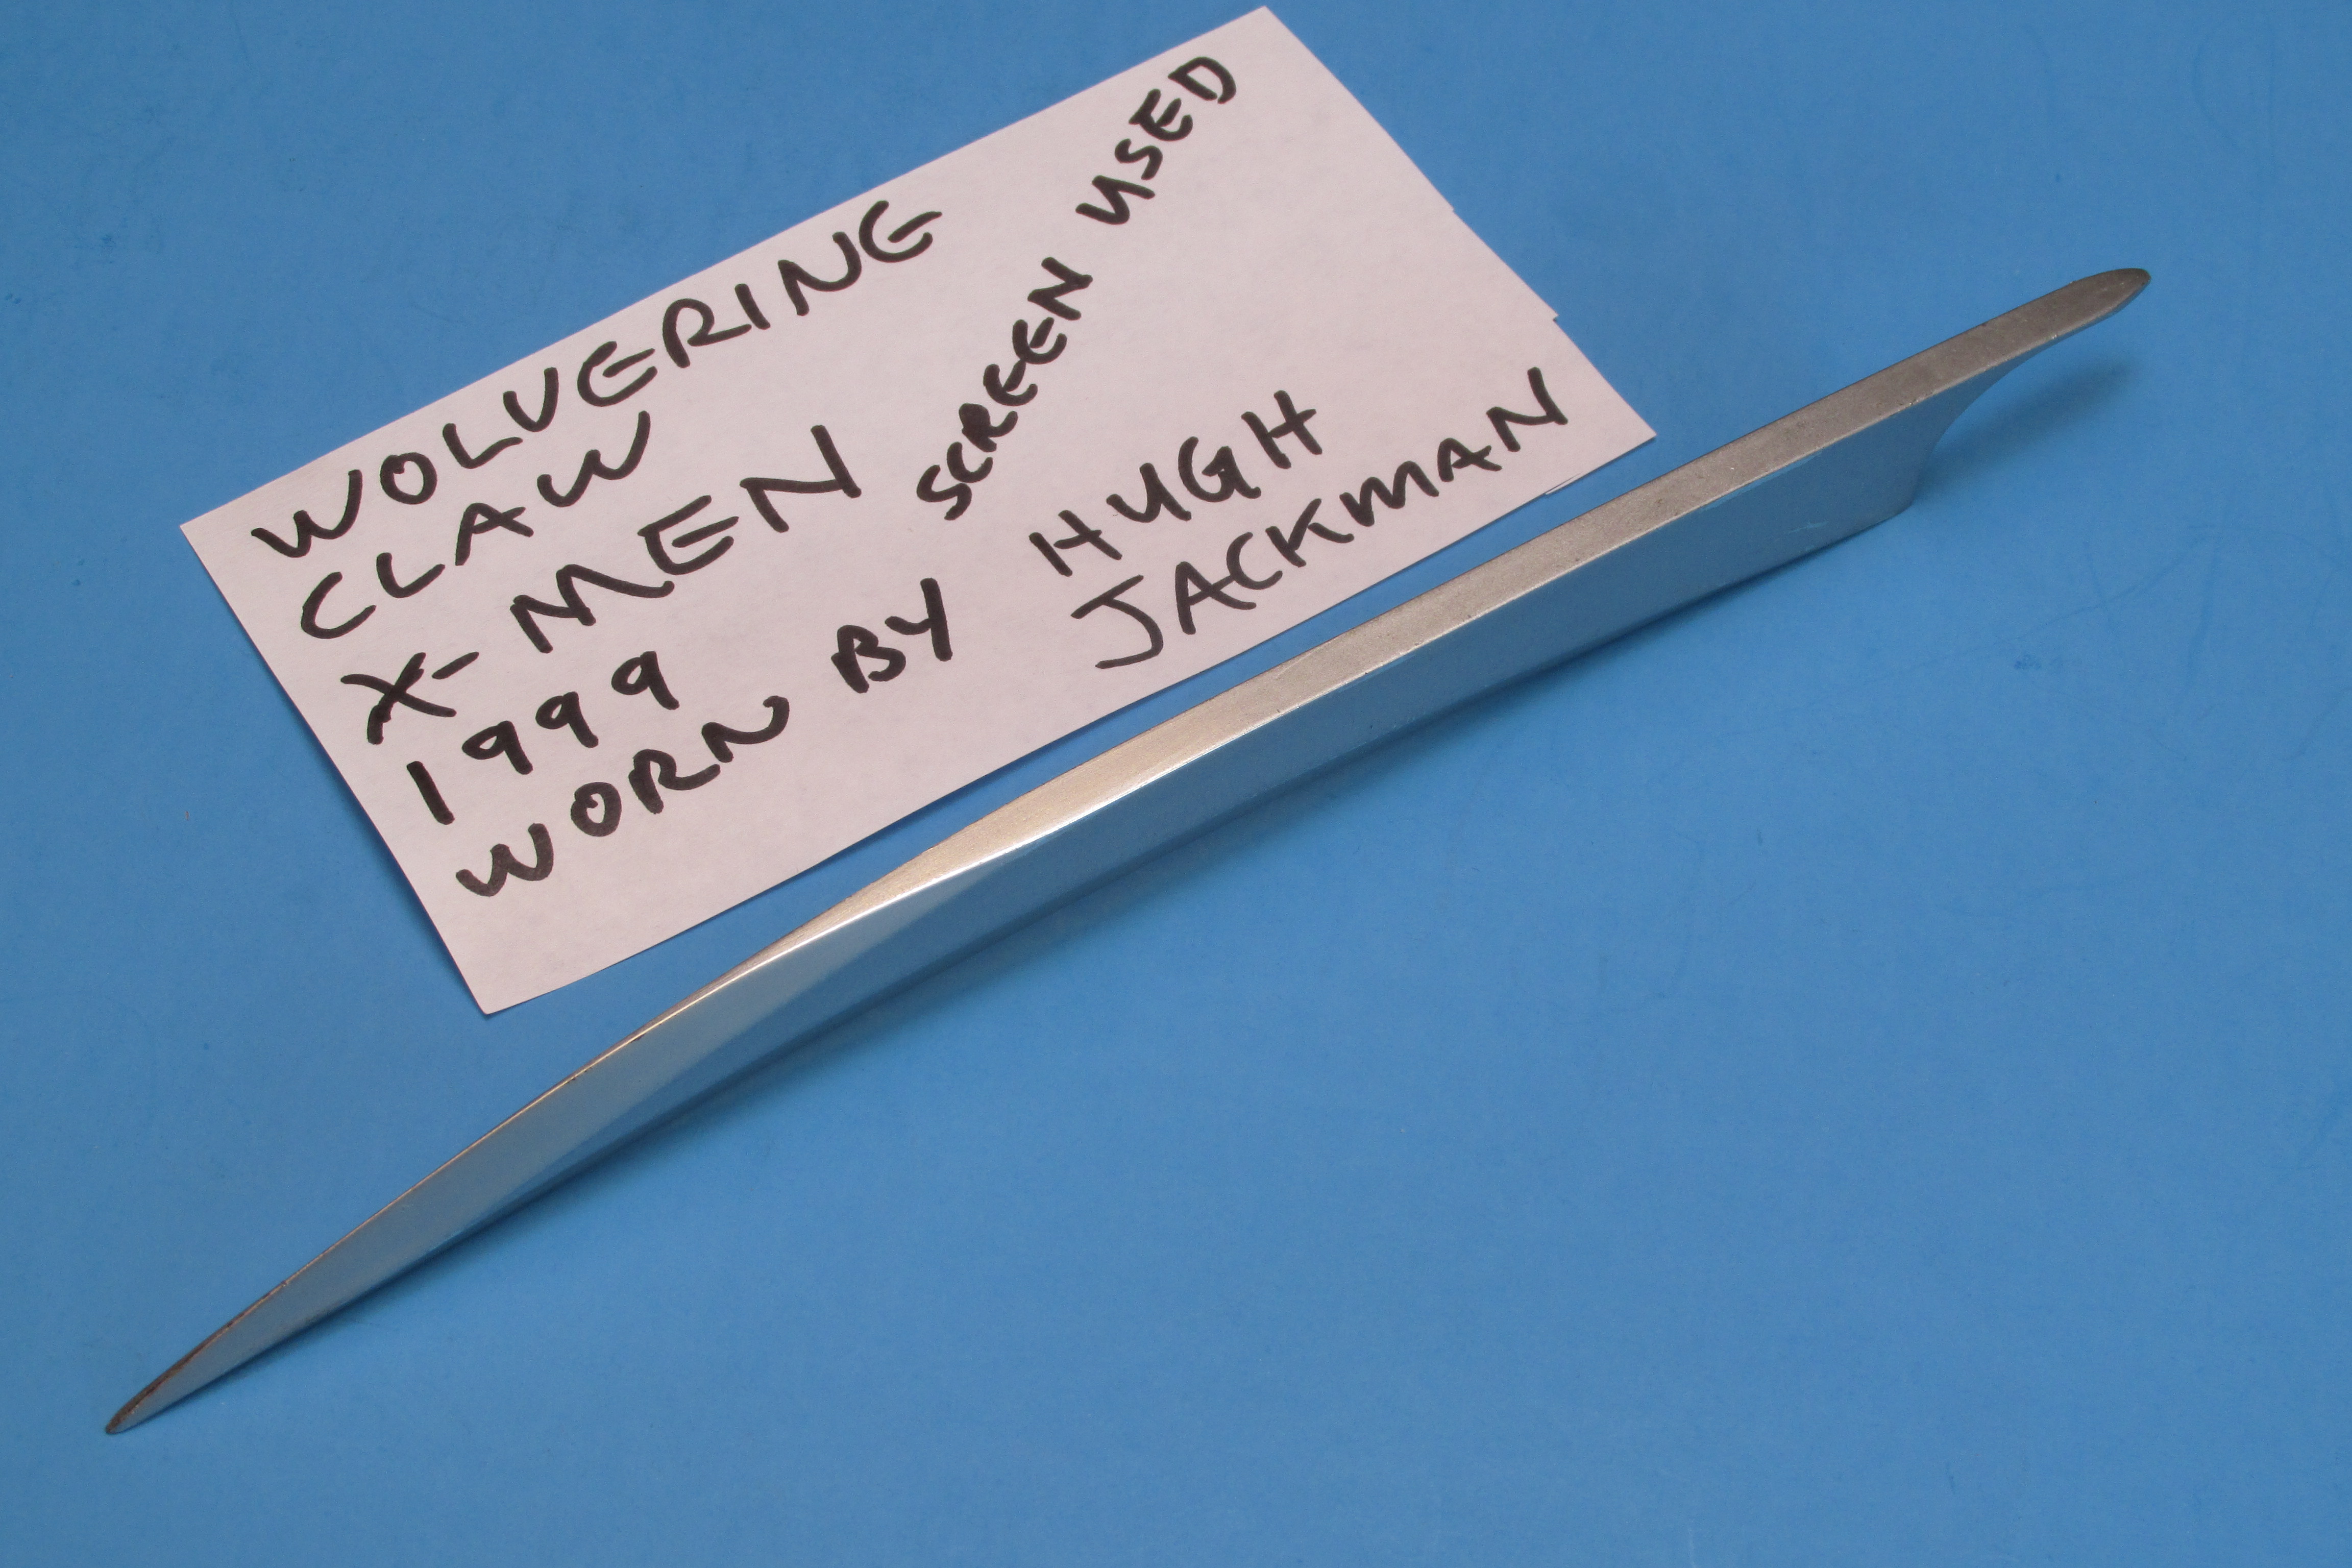 WOLVERINE
CLAW
X-MEN SCREEN USED
1999
WORN BY HUGH
JACKMAN